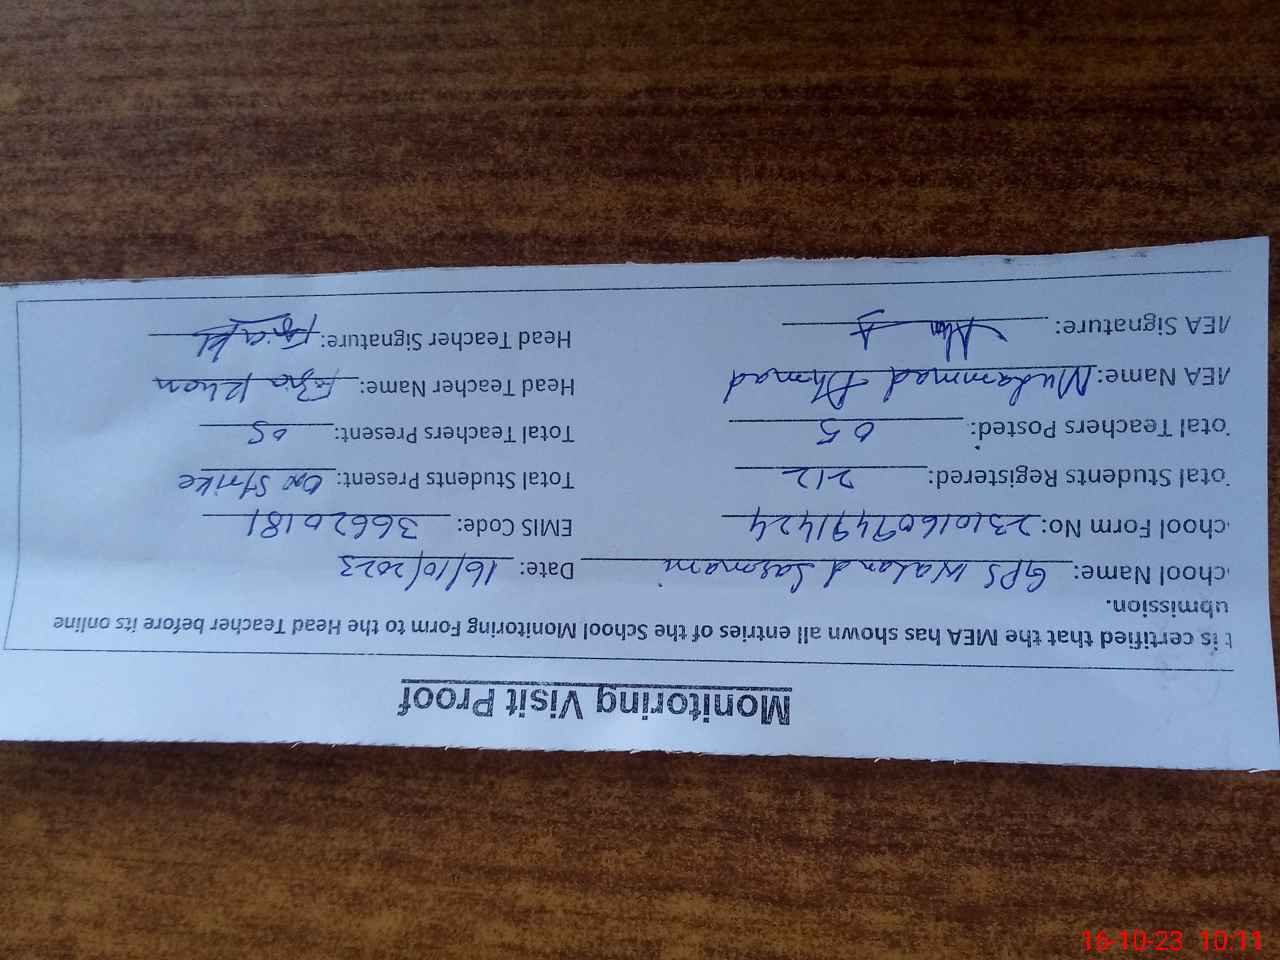 Monitoring Visit Proof
t is certified that the MEA has shown all entries of the School Monitoring Form to the Head Teacher before its online
ubmission.
chool Name: GPS Waland Sasmani Date: 16/10/2023
chool Form No: 23101609491424 EMIS Code: 36620181
otal Students Registered: 212 Total Students Present: On Strike
otal Teachers Posted: 05 Total Teachers Present: 05
MEA Name: Muhammad Ahmad Head Teacher Name: Khan
MEA Signature: Head Teacher Signature:
16-10-23 10:11